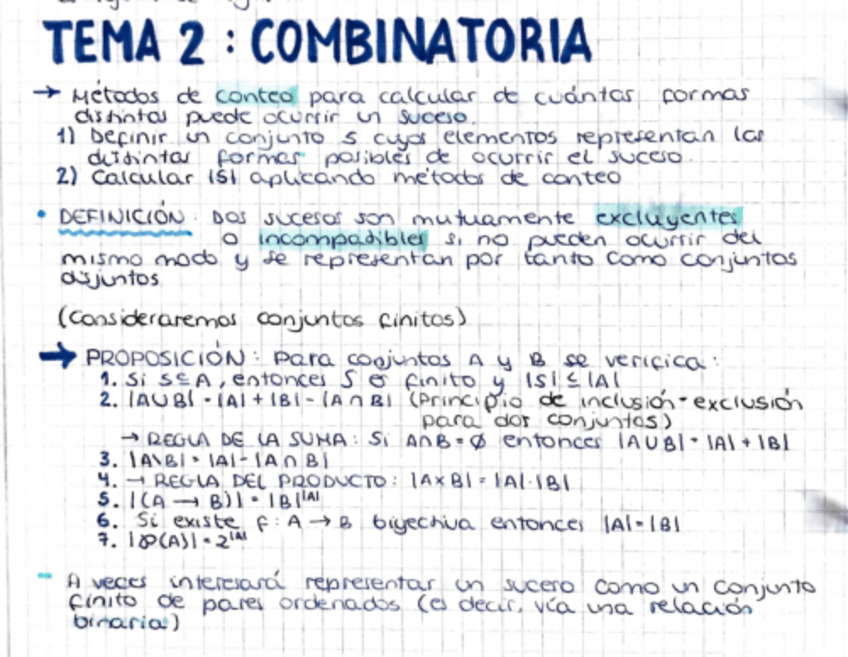 TEMA 2 : COMBINATORIA
→ Métodos de conteo para calcular de cuántas formas
distintas puede ocurrir un suceso.
1) Definir un conjunto S cuyos elementos representan las
distintas formas posibles de ocurrir el suceso.
2) Calcular |S| aplicando métodos de conteo
• DEFINICIÓN: Dos sucesos son mutuamente excluyentes
o incompatibles si no pueden ocurrir del
mismo modo y se representan por tanto como conjuntos
disjuntos
(Consideraremos conjuntos finitos)
→ PROPOSICIÓN: Para conjuntos A y B se verifica:
1. Si S⊆A, entonces S es finito y |S| ≤ |A|
2. |A∪B| = |A| + |B| - |A∩B| (Principio de inclusión-exclusión
para dos conjuntos)
→ REGLA DE LA SUMA: Si A∩B=∅ entonces |A∪B| = |A| + |B|
3. |A\B| = |A| - |A∩B|
4. → REGLA DEL PRODUCTO: |A×B| = |A|·|B|
5. |(A → B)| = |B|^|A|
6. Si existe f: A → B biyectiva entonces |A| = |B|
7. |℘(A)| = 2^|A|
- A veces interesará representar un suceso como un conjunto
finito de pares ordenados (es decir, vía una relación
binaria)